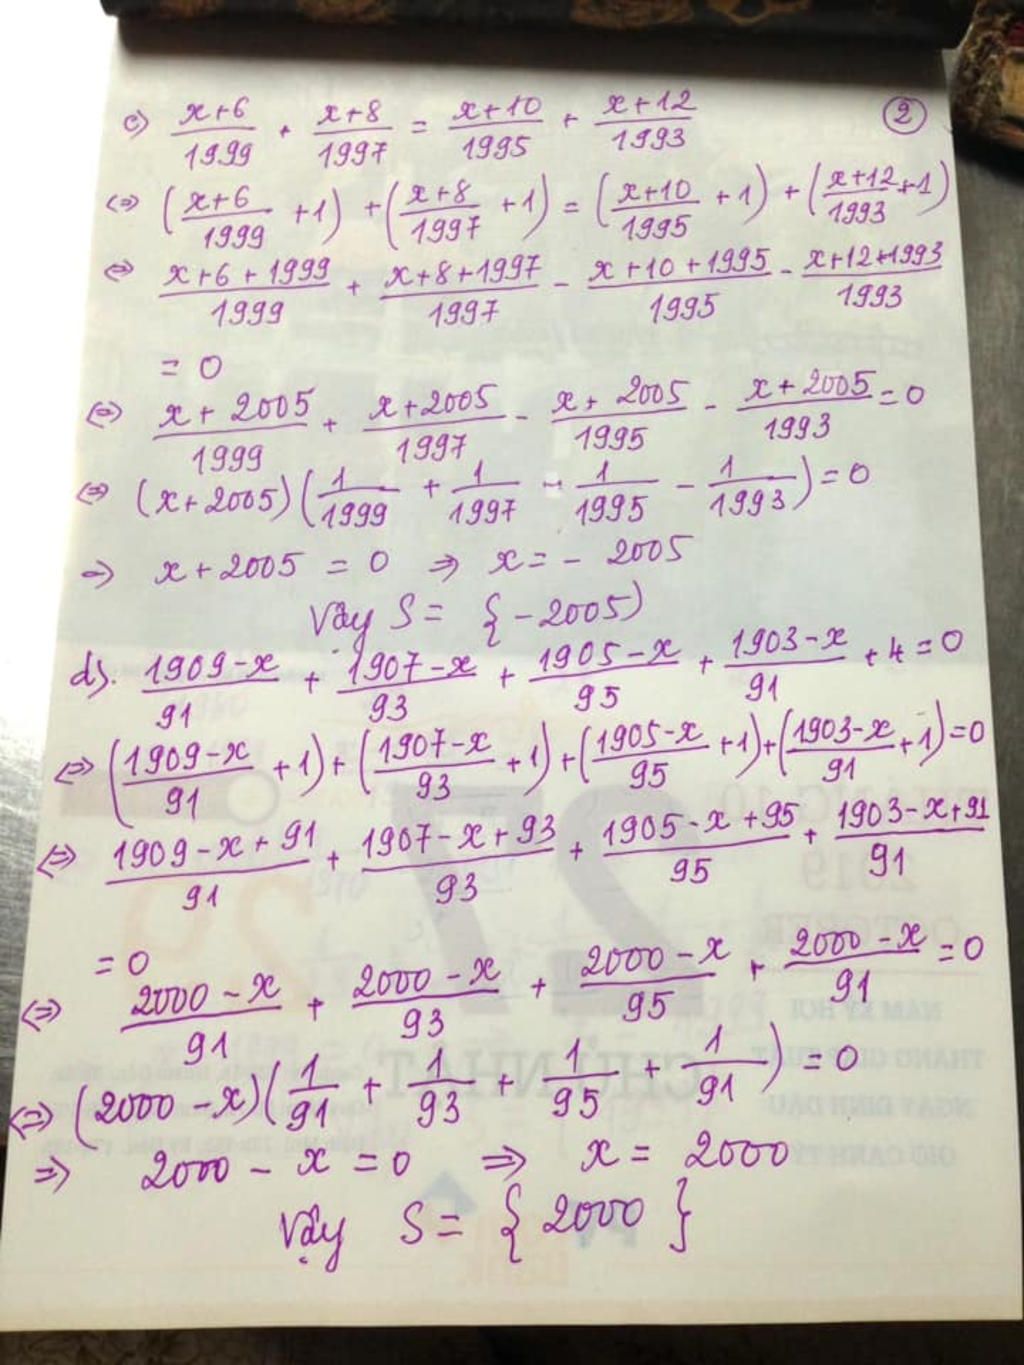 ②
c) (x+6)/1999 + (x+8)/1997 = (x+10)/1995 + (x+12)/1993
⇔ ((x+6)/1999 + 1) + ((x+8)/1997 + 1) = ((x+10)/1995 + 1) + ((x+12)/1993 + 1)
⇔ (x+6+1999)/1999 + (x+8+1997)/1997 - (x+10+1995)/1995 - (x+12+1993)/1993
= 0
⇔ (x+2005)/1999 + (x+2005)/1997 - (x+2005)/1995 - (x+2005)/1993 = 0
⇔ (x+2005)(1/1999 + 1/1997 - 1/1995 - 1/1993) = 0
⇒ x+2005 = 0 ⇒ x = - 2005
Vậy S = {-2005)
d). (1909-x)/91 + (1907-x)/93 + (1905-x)/95 + (1903-x)/91 + 4 = 0
⇔ ((1909-x)/91 + 1) + ((1907-x)/93 + 1) + ((1905-x)/95 + 1) + ((1903-x)/91 + 1) = 0
⇔ (1909-x+91)/91 + (1907-x+93)/93 + (1905-x+95)/95 + (1903-x+91)/91
= 0
⇔ (2000-x)/91 + (2000-x)/93 + (2000-x)/95 + (2000-x)/91 = 0
⇔ (2000-x)(1/91 + 1/93 + 1/95 + 1/91) = 0
⇒ 2000 - x = 0 ⇒ x = 2000
Vậy S = { 2000 }